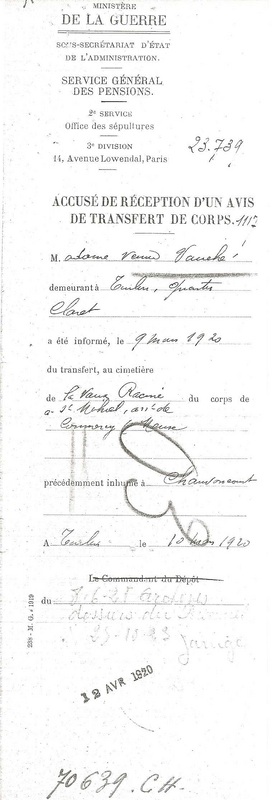 MINISTÈRE
DE LA GUERRE
SOUS-SECRÉTARIAT D'ÉTAT
DE L'ADMINISTRATION.
SERVICE GÉNÉRAL
DES PENSIONS.
2e SERVICE
Office des sépultures
3e DIVISION
14, Avenue Lowendal, Paris
23.739
ACCUSÉ DE RÉCEPTION D'UN AVIS
DE TRANSFERT DE CORPS.
Madame Veuve
demeurant à Toulon, quartier
Claret
a été informé, le 9 mars 1920
du transfert, au cimetière
de la Vaux Racine du corps de
à St Mihiel, arrt de
Commercy Meuse
précédemment inhumé à Chauvoncourt
A Toulon le 10 mars 1920
Le Commandant du Dépôt
du
dossier du
12 AVR 1920
70639. CH.